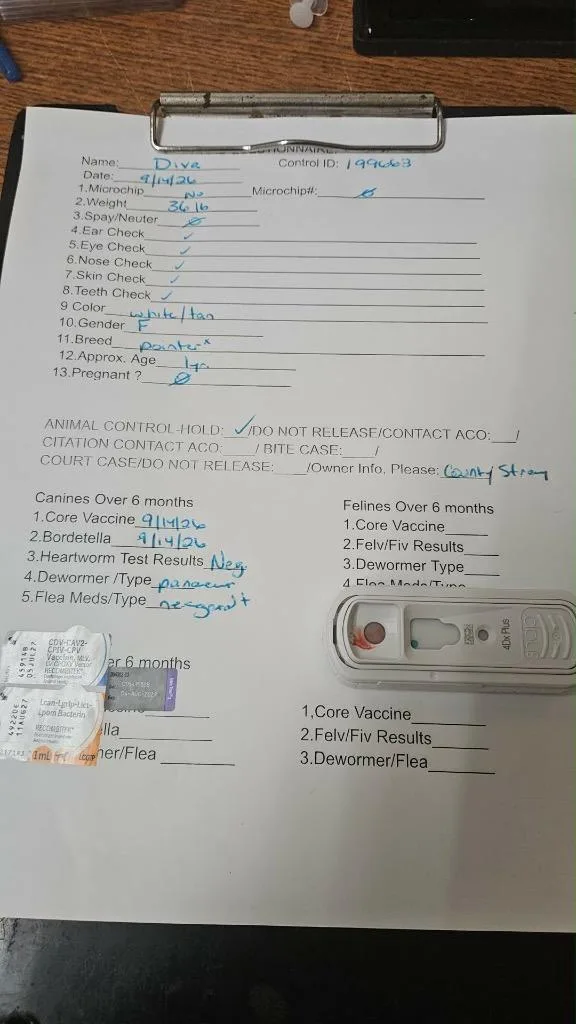 Name: Diva Control ID: 199663
Date: 9/14/26
1.Microchip No Microchip#: Ø
2.Weight 36 lb
3.Spay/Neuter Ø
4.Ear Check ✓
5.Eye Check ✓
6.Nose Check ✓
7.Skin Check ✓
8.Teeth Check ✓
9 Color white/tan
10.Gender F
11.Breed pointer x
12.Approx. Age 1yr
13.Pregnant ? Ø
ANIMAL CONTROL-HOLD: ✓/DO NOT RELEASE/CONTACT ACO:___/
CITATION CONTACT ACO:___/ BITE CASE:___/
COURT CASE/DO NOT RELEASE:___/Owner Info, Please: County Stray
Canines Over 6 months
1.Core Vaccine 9/14/26
2.Bordetella 9/14/26
3.Heartworm Test Results Neg
4.Dewormer /Type panacur
5.Flea Meds/Type nexgard +
Felines Over 6 months
1.Core Vaccine
2.Felv/Fiv Results
3.Dewormer Type
4 Flea Meds/Type
40x Plus
CDV-CAV2-
CPIV-CPV
Vaccine, MLV,
RECOMBITEK
459148
05JUL27
er 6 months
Lcan-Lgrip-Lict-
Lpom Bacterin
RECOMBITEK
492206
11AUG27
1 mL
lla
ner/Flea
1,Core Vaccine
2.Felv/Fiv Results
3.Dewormer/Flea